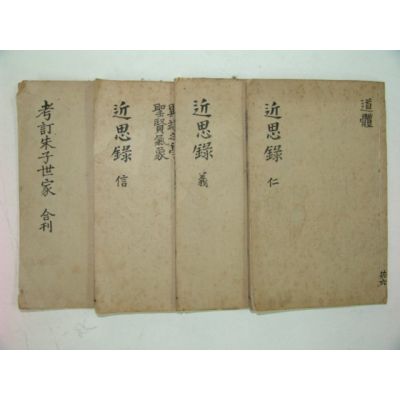 道體
近思錄 仁
近思錄 義
異端之學
聖賢氣象
近思錄 信
考訂朱子世家 合刊